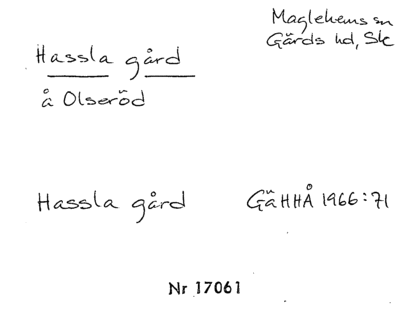 Maglehems sn
Gärds hd, Sk
Hassla gård
å Olseröd
Hassla gård GäHHÅ 1966:71
Nr 17061